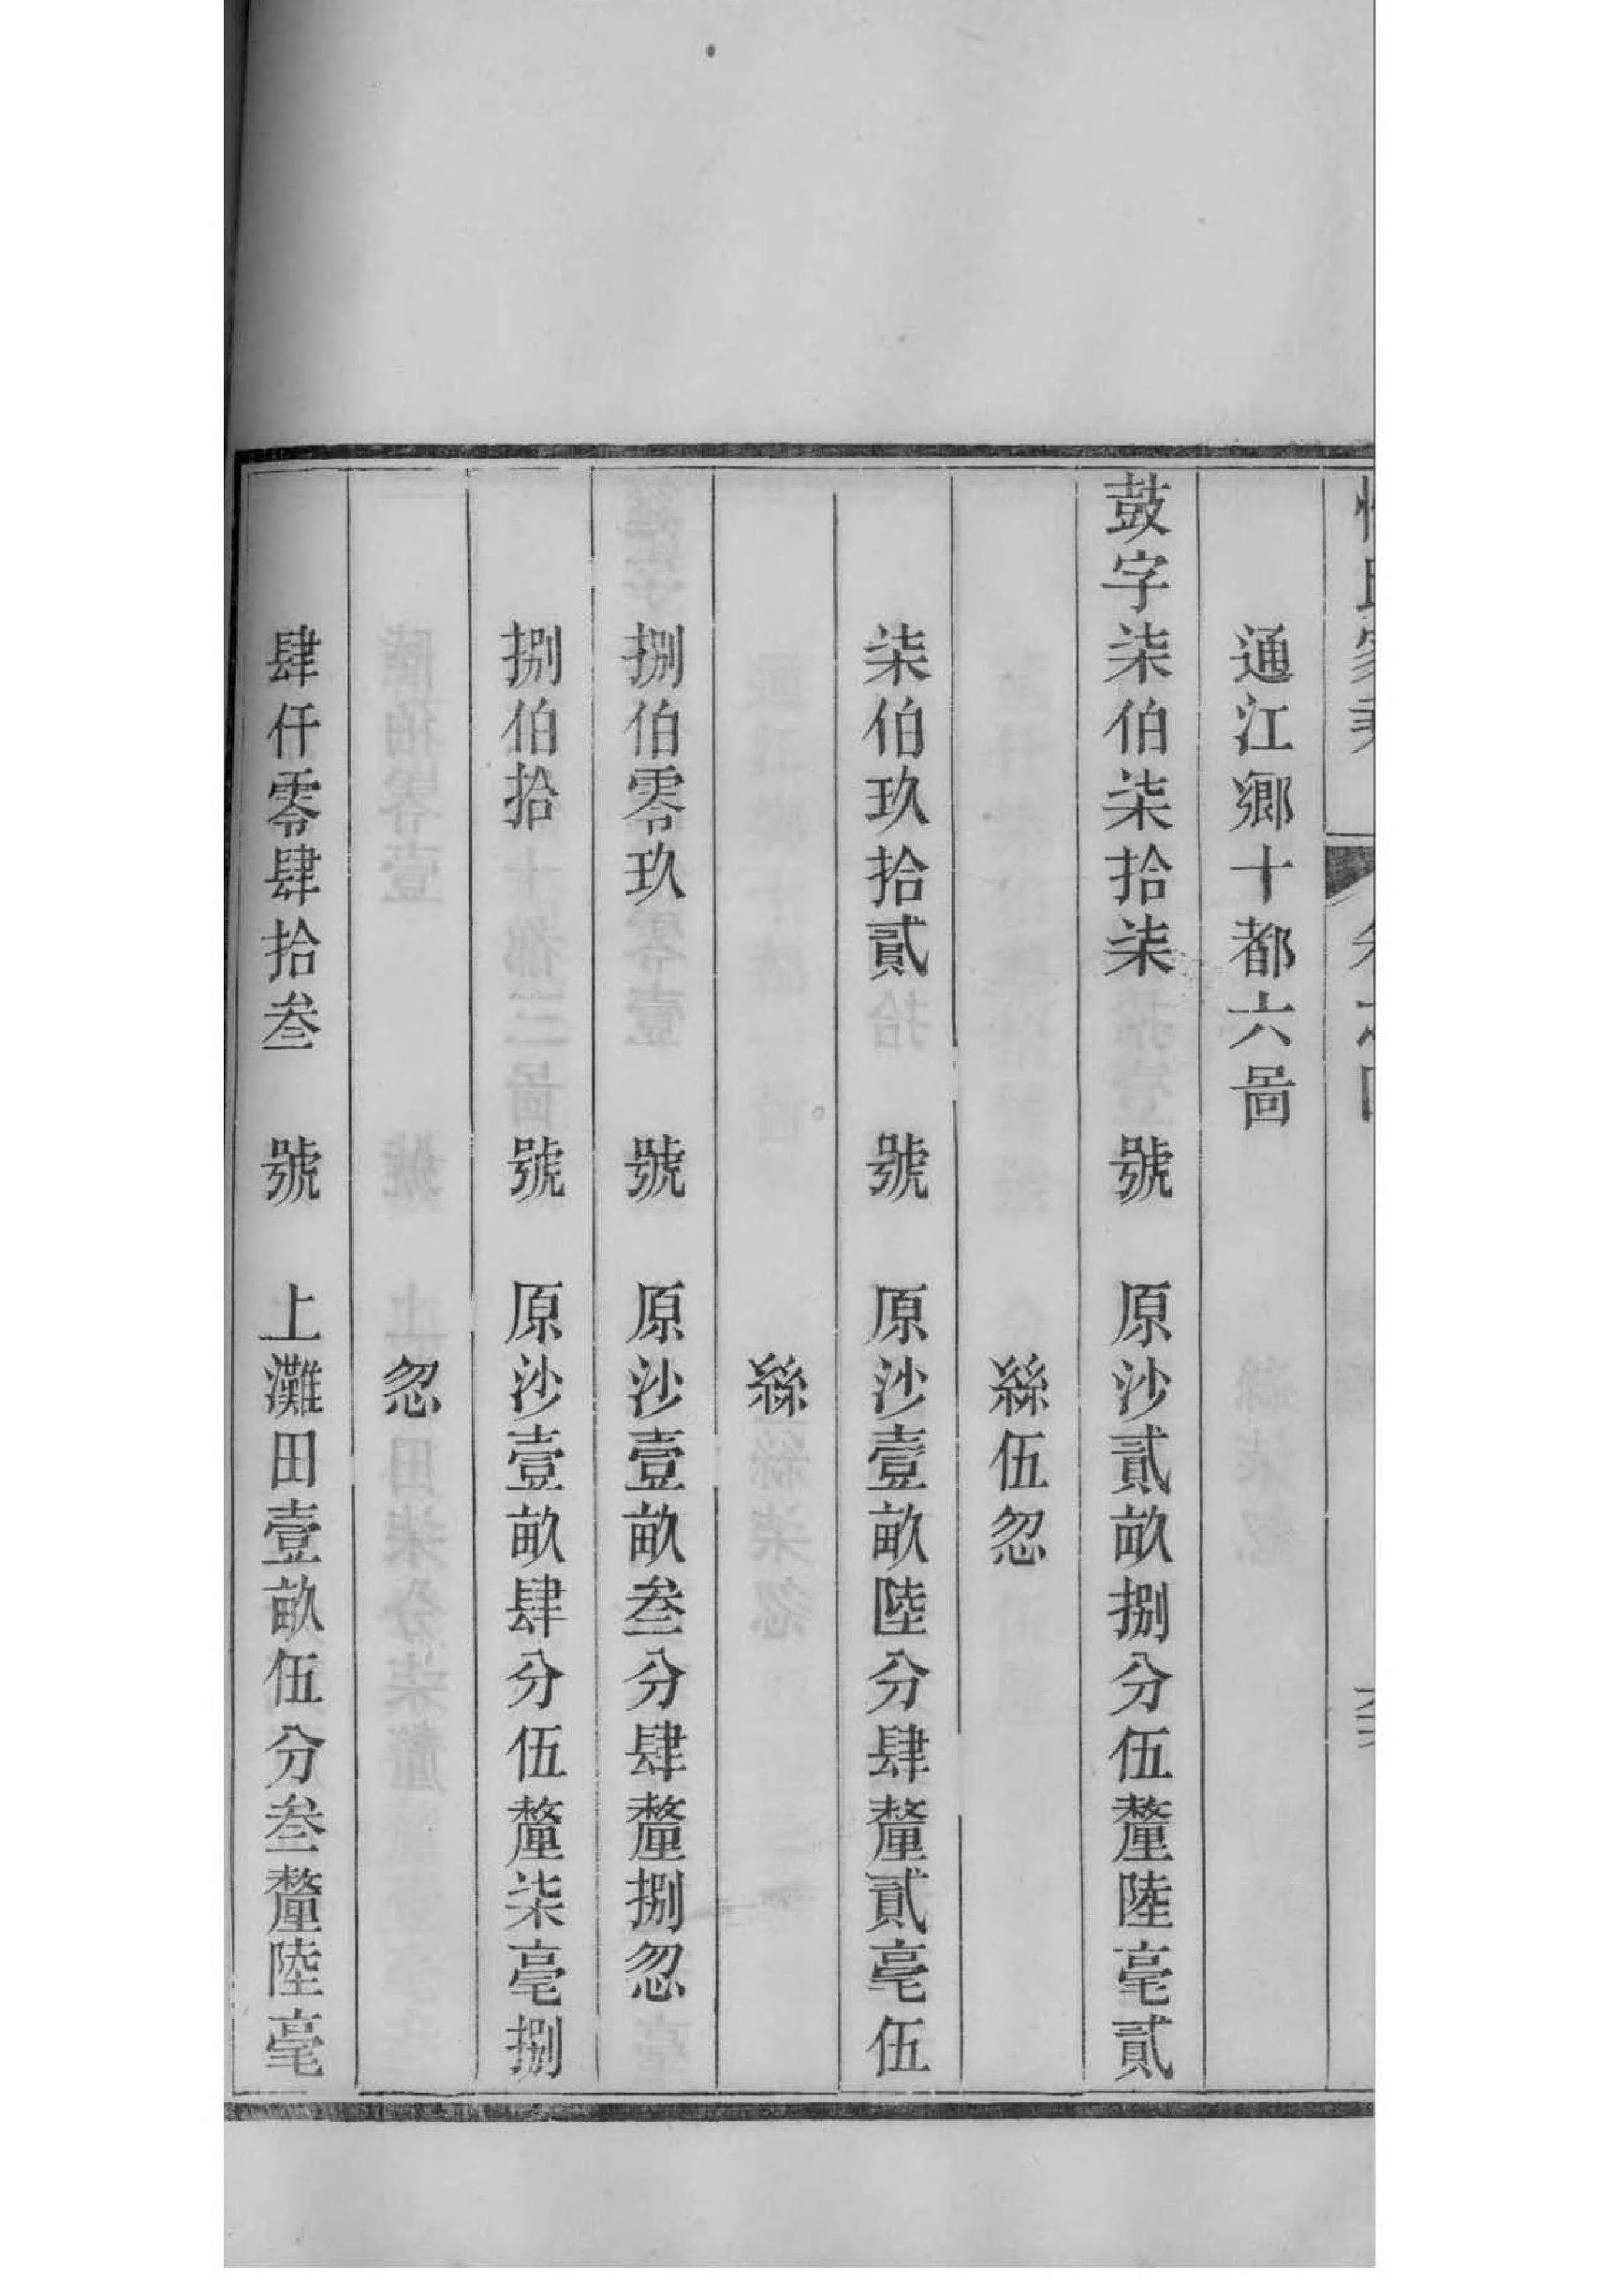 通江鄉十都六啚
鼓字柒伯柒拾柒 號 原沙貳畝捌分伍釐陸毫貳
絲伍忽
柒伯玖拾貳 號 原沙壹畝陸分肆釐貳毫伍
絲
捌伯零玖 號 原沙壹畝叁分肆釐捌忽
捌伯拾 號 原沙壹畝肆分伍釐柒毫捌
忽
肆仟零肆拾叁 號 上灘田壹畝伍分叁釐陸毫